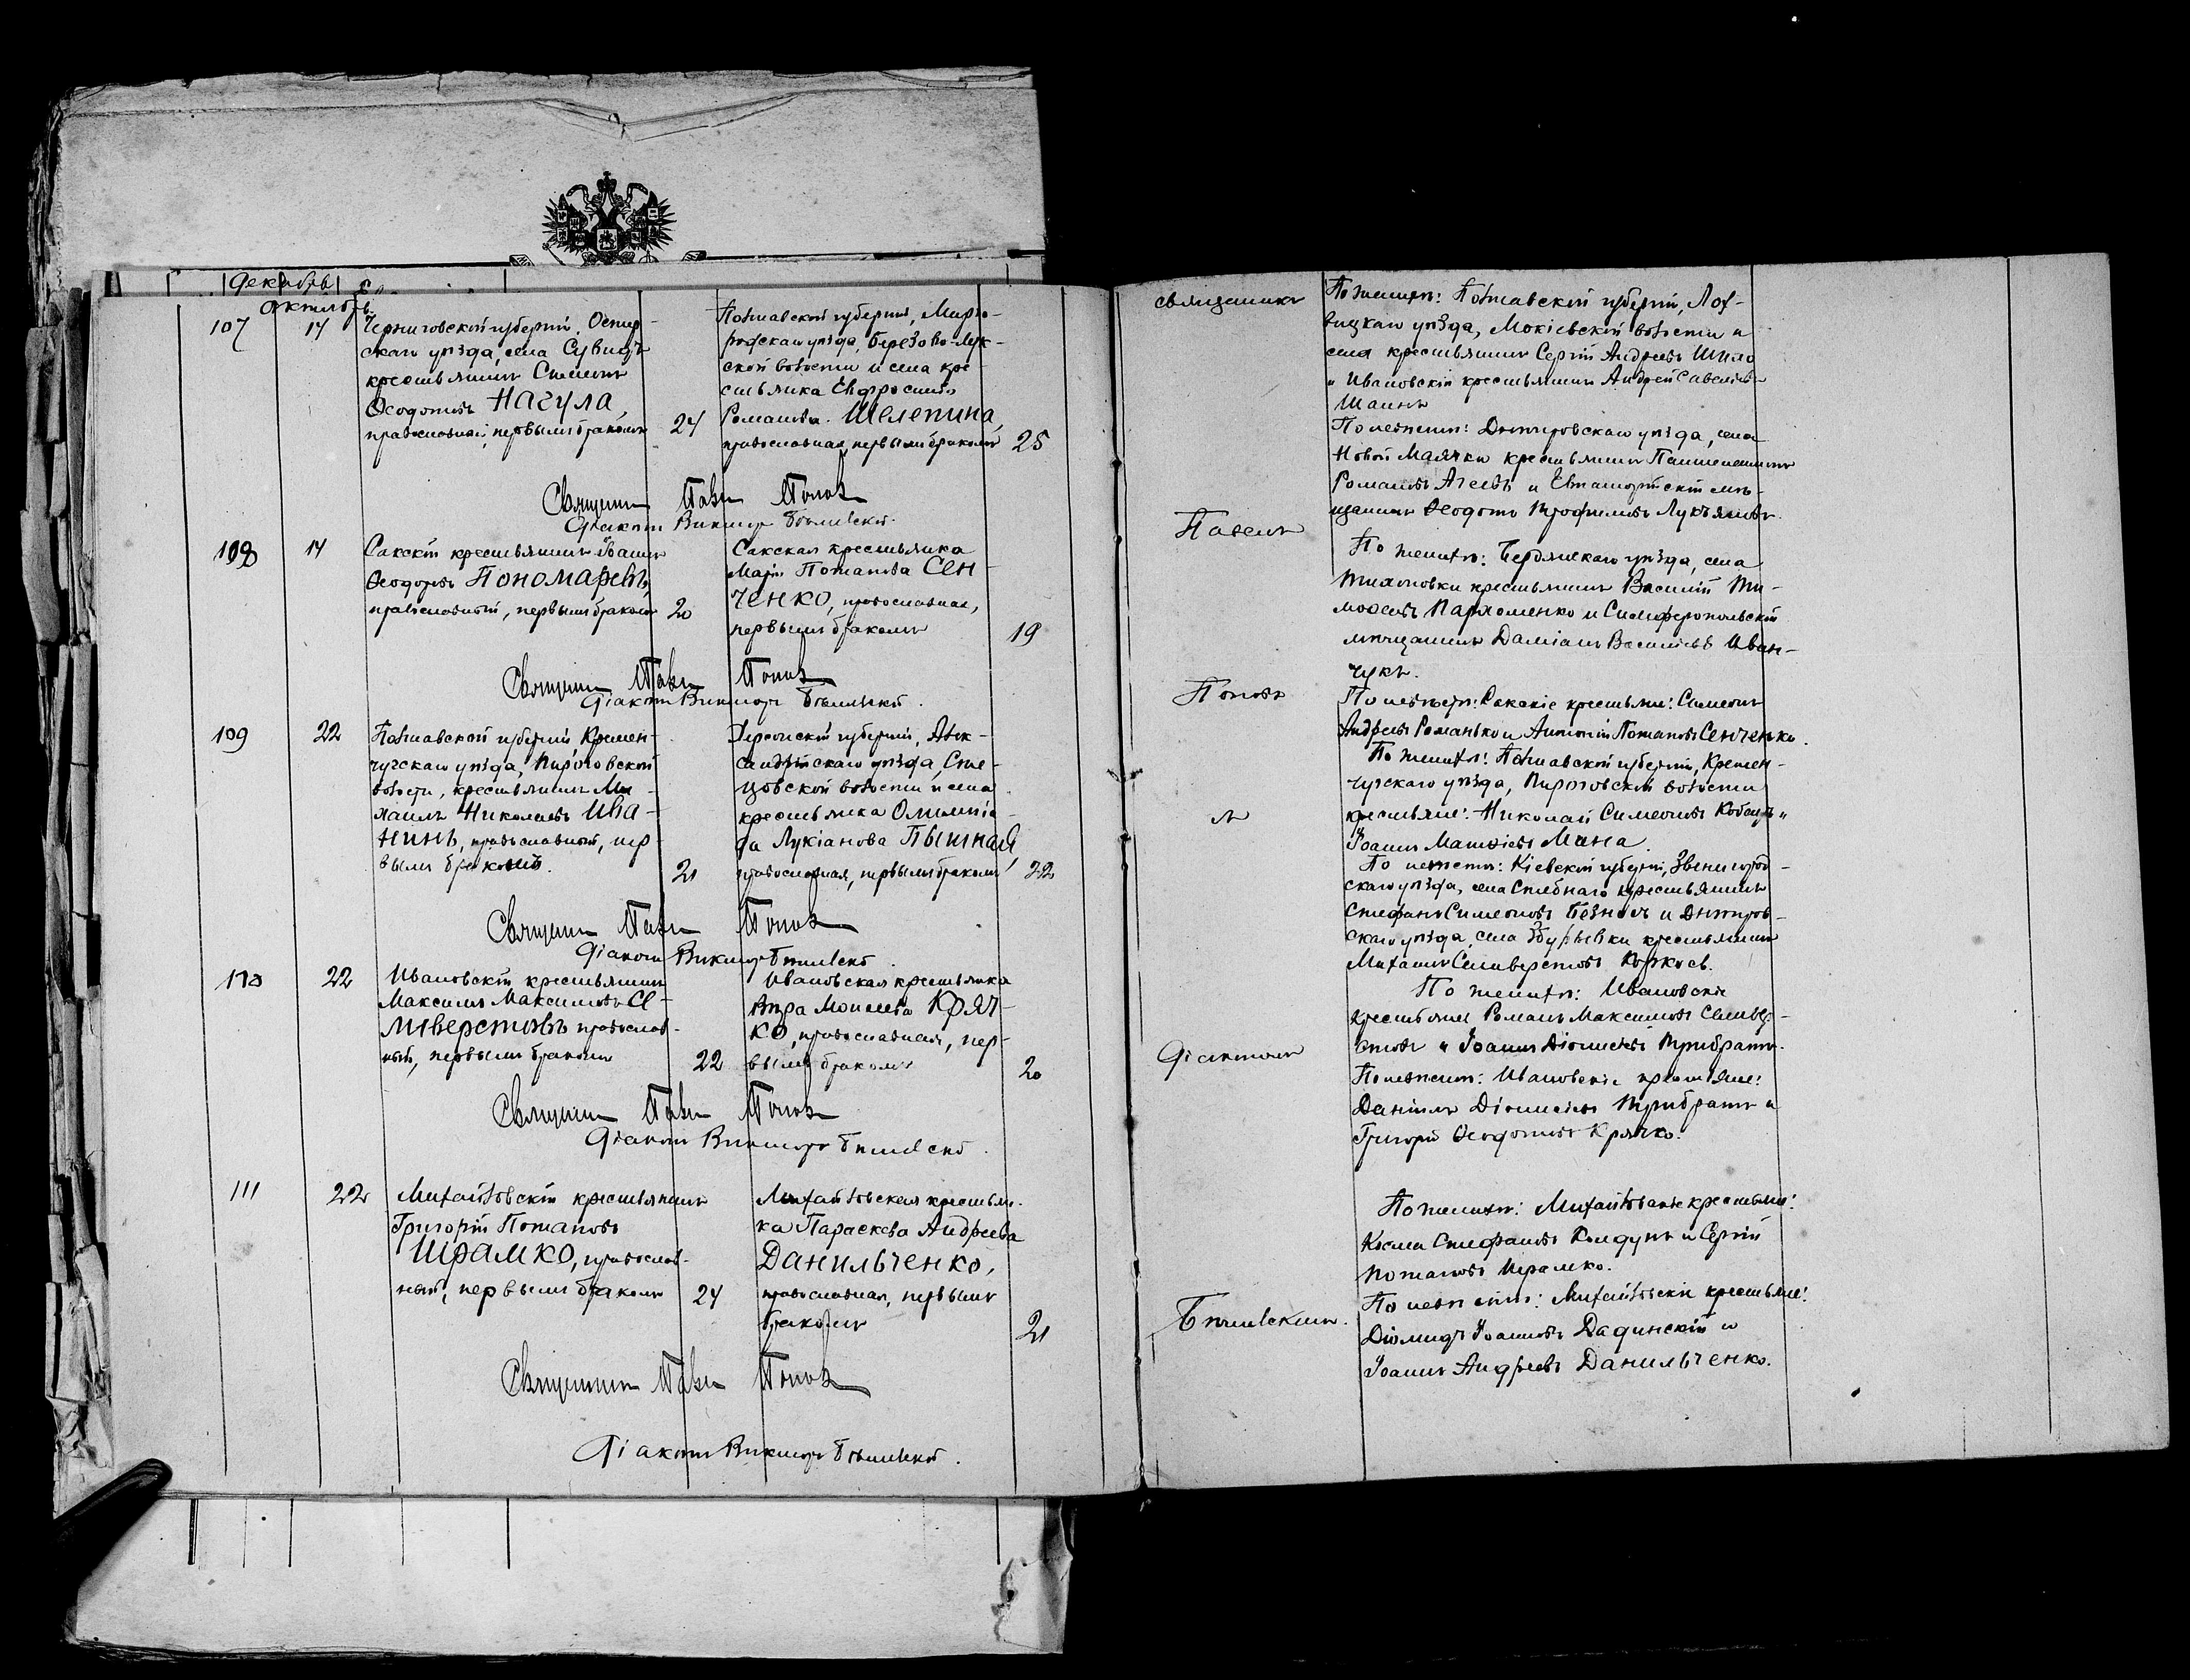 Декабрь
Октябрь
107
14
Черниговской губерніи, Остер-
скаго уѣзда, села Сувидъ
крестьянинъ Симеонъ
Ѳеодотовъ Нагула,
православный, первымъ бракомъ
24
Полтавской губерніи, Мирго-
родскаго уѣзда, Березово-Лук-
ской волости и села кре-
стьянка Евфросинія
Романова Шелепина,
православная, первымъ бракомъ
25
Священникъ Павелъ Поповъ
Діаконъ Викторъ Бѣлинскій
108
14
Сакскій крестьянинъ Іоаннъ
Ѳеодоровъ Пономаревъ,
православный, первымъ бракомъ
20
Сакская крестьянка
Марія Потапова Сен-
ченко, православная,
первымъ бракомъ
19
Священникъ Павелъ Поповъ
Діаконъ Викторъ Бѣлинскій.
109
22
Полтавской губерніи, Кремен-
чугскаго уѣзда, Пироговской
волости, крестьянинъ Ми-
хаилъ Николаевъ Ива-
нинъ, православный, пер-
вымъ бракомъ.
21
Херсонской губерніи, Алек-
сандрійскаго уѣзда,
волости и села
крестьянка Олимпіа-
да Лукіанова Пышная,
православная, первымъ бракомъ
22
Священникъ Павелъ Поповъ
Діаконъ Викторъ Бѣлинскій.
110
22
Ивановскій крестьянинъ
Максимъ Максимовъ Се-
ливерстовъ православ-
ный, первымъ бракомъ
22
Ивановская крестьянка
Вѣра Моисеева Кряч-
ко, православная, пер-
вымъ бракомъ
20
Священникъ Павелъ Поповъ
Діаконъ Викторъ Бѣлинскій.
111
22
Михайловскій крестьянинъ
Григорій Потаповъ
Шрамко, православ-
ный, первымъ бракомъ
24
Михайловская крестьян-
ка Параскева Андреева
Данильченко,
православная, первымъ
бракомъ
21
Священникъ Павелъ Поповъ
Діаконъ Викторъ Бѣлинскій.
священникъ
Павелъ
Поповъ
съ
діакономъ
Бѣлинскимъ.
По женихѣ: Полтавской губерніи, Лох-
вицкаго уѣзда, Мокіевской волости и
села крестьянинъ Сергій Андреевъ Шило
и Ивановскій крестьянинъ Андрей Савельевъ
По невѣстѣ: Днѣпровскаго уѣзда, села
Новой Маячки крестьянинъ Пантелеимонъ
Романовъ Агеевъ и Евпаторійскій мѣ-
щанинъ Ѳеодотъ Трофимовъ Лукъяновъ.
По женихѣ: Бердянскаго уѣзда, села
Тихоновки крестьянинъ Василій Ти-
моѳеевъ Пархоменко и Симферопольскій
мѣщанинъ Даміанъ Васильевъ Иван-
чукъ.
По невѣстѣ: Сакскіе крестьяне: Симеонъ
Андреевъ Романько и Антоній Потаповъ Сенченко.
По женихѣ: Полтавской губерніи, Кремен-
чугскаго уѣзда, Пироговской волости
крестьяне: Николай Симеоновъ Кобецъ и
Іоаннъ Матѳіевъ Мана.
По невѣстѣ: Кіевской губерніи, Звенигород-
скаго уѣзда, села Стебнаго крестьянинъ
Стефанъ Симеоновъ и Днѣпров-
скаго уѣзда, села Збурьевки крестьянинъ
Михаилъ Селиверстовъ
По женихѣ: Ивановскіе
крестьяне Романъ Максимовъ Селивер-
стовъ и Іоаннъ Діонисіевъ Трибратъ.
По невѣстѣ: Ивановскіе крестьяне:
Даніилъ Діонисіевъ Трибратъ и
Григорій Ѳеодотовъ Крячко.
По женихѣ: Михайловскіе крестьяне:
Косма Стефановъ Колдунъ и Сергій
Потаповъ Шрамко.
По невѣстѣ: Михайловскіе крестьяне:
Діомидъ Іоанновъ Дадинскій и
Іоаннъ Андреевъ Данильченко.